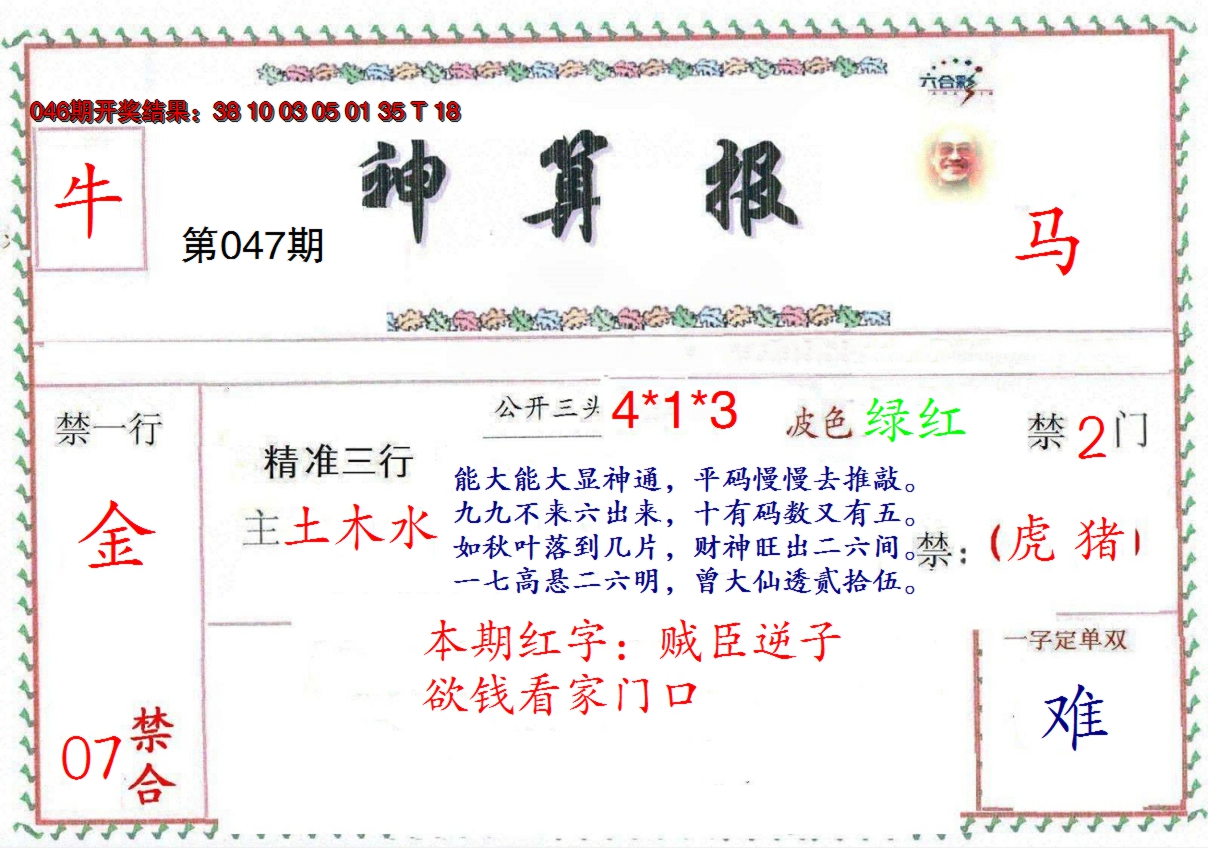 六合彩
046期开奖结果：38 10 03 05 01 35 T 18
牛
神算报
第047期
马
禁一行
金
07
禁合
精准三行
主土木水
公开三头 4*1*3
波色 绿红
能大能大显神通，平码慢慢去推敲。
九九不来六出来，十有码数又有五。
如秋叶落到几片，财神旺出二六间。
一七高悬二六明，曾大仙透贰拾伍。
禁2门
禁：（虎 猪）
本期红字：贼臣逆子
欲钱看家门口
一字定单双
难